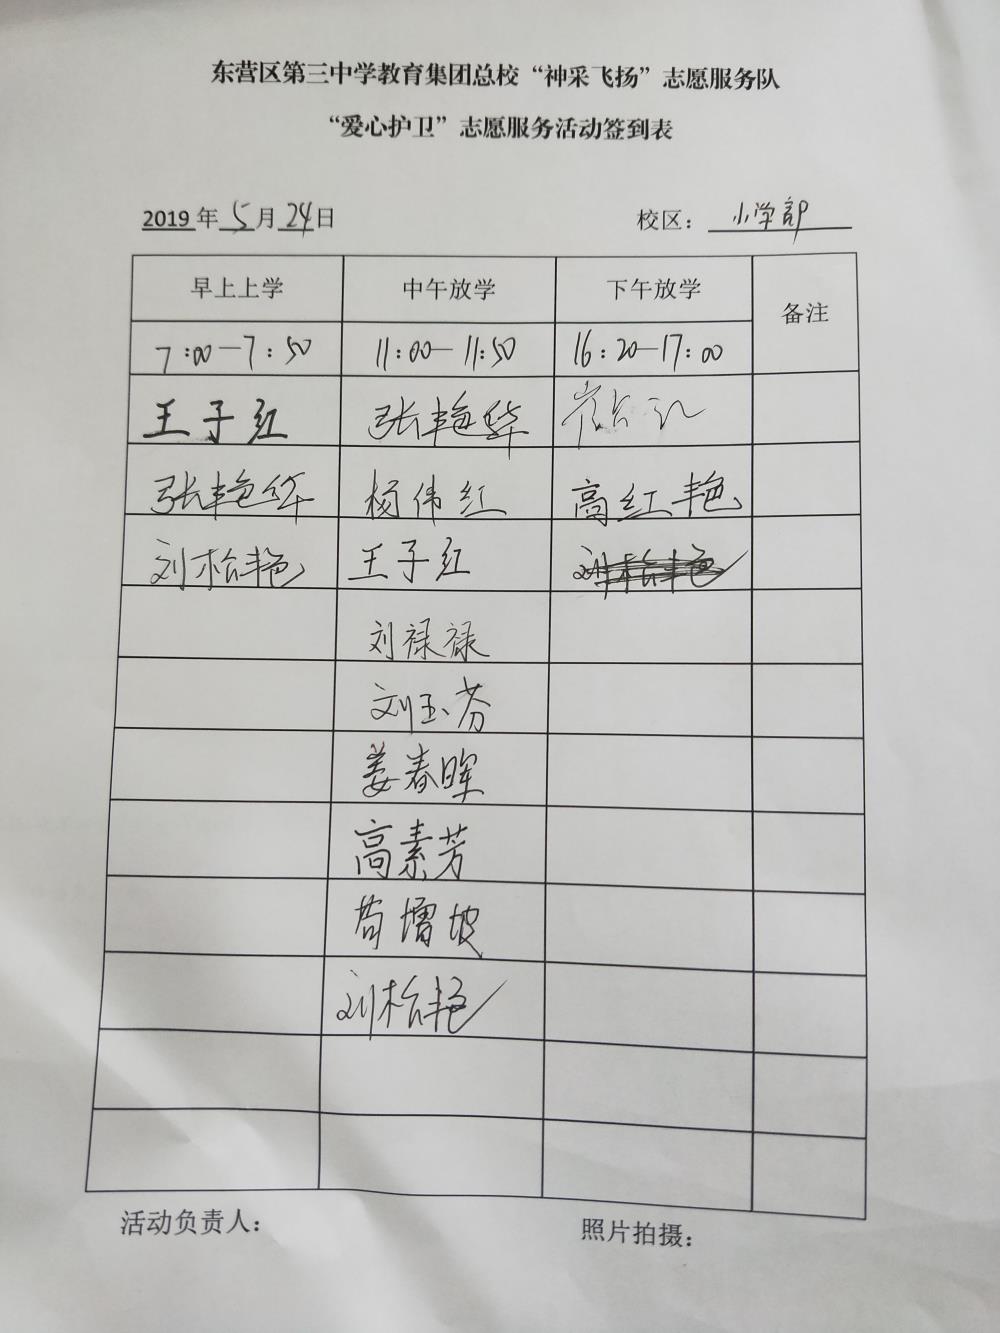 东营区第三中学教育集团总校“神采飞扬”志愿服务队
“爱心护卫”志愿服务活动签到表
2019年5月24日 校区：小学部
早上上学 中午放学 下午放学 备注
7:00—7:50 11:00—11:50 16:20—17:00
王子红 张艳华
张艳华 杨伟红 高红艳
刘柗艳 王子红
刘禄禄
刘玉芬
姜春晖
高素芳
苟增坡
刘柗艳
活动负责人： 照片拍摄：